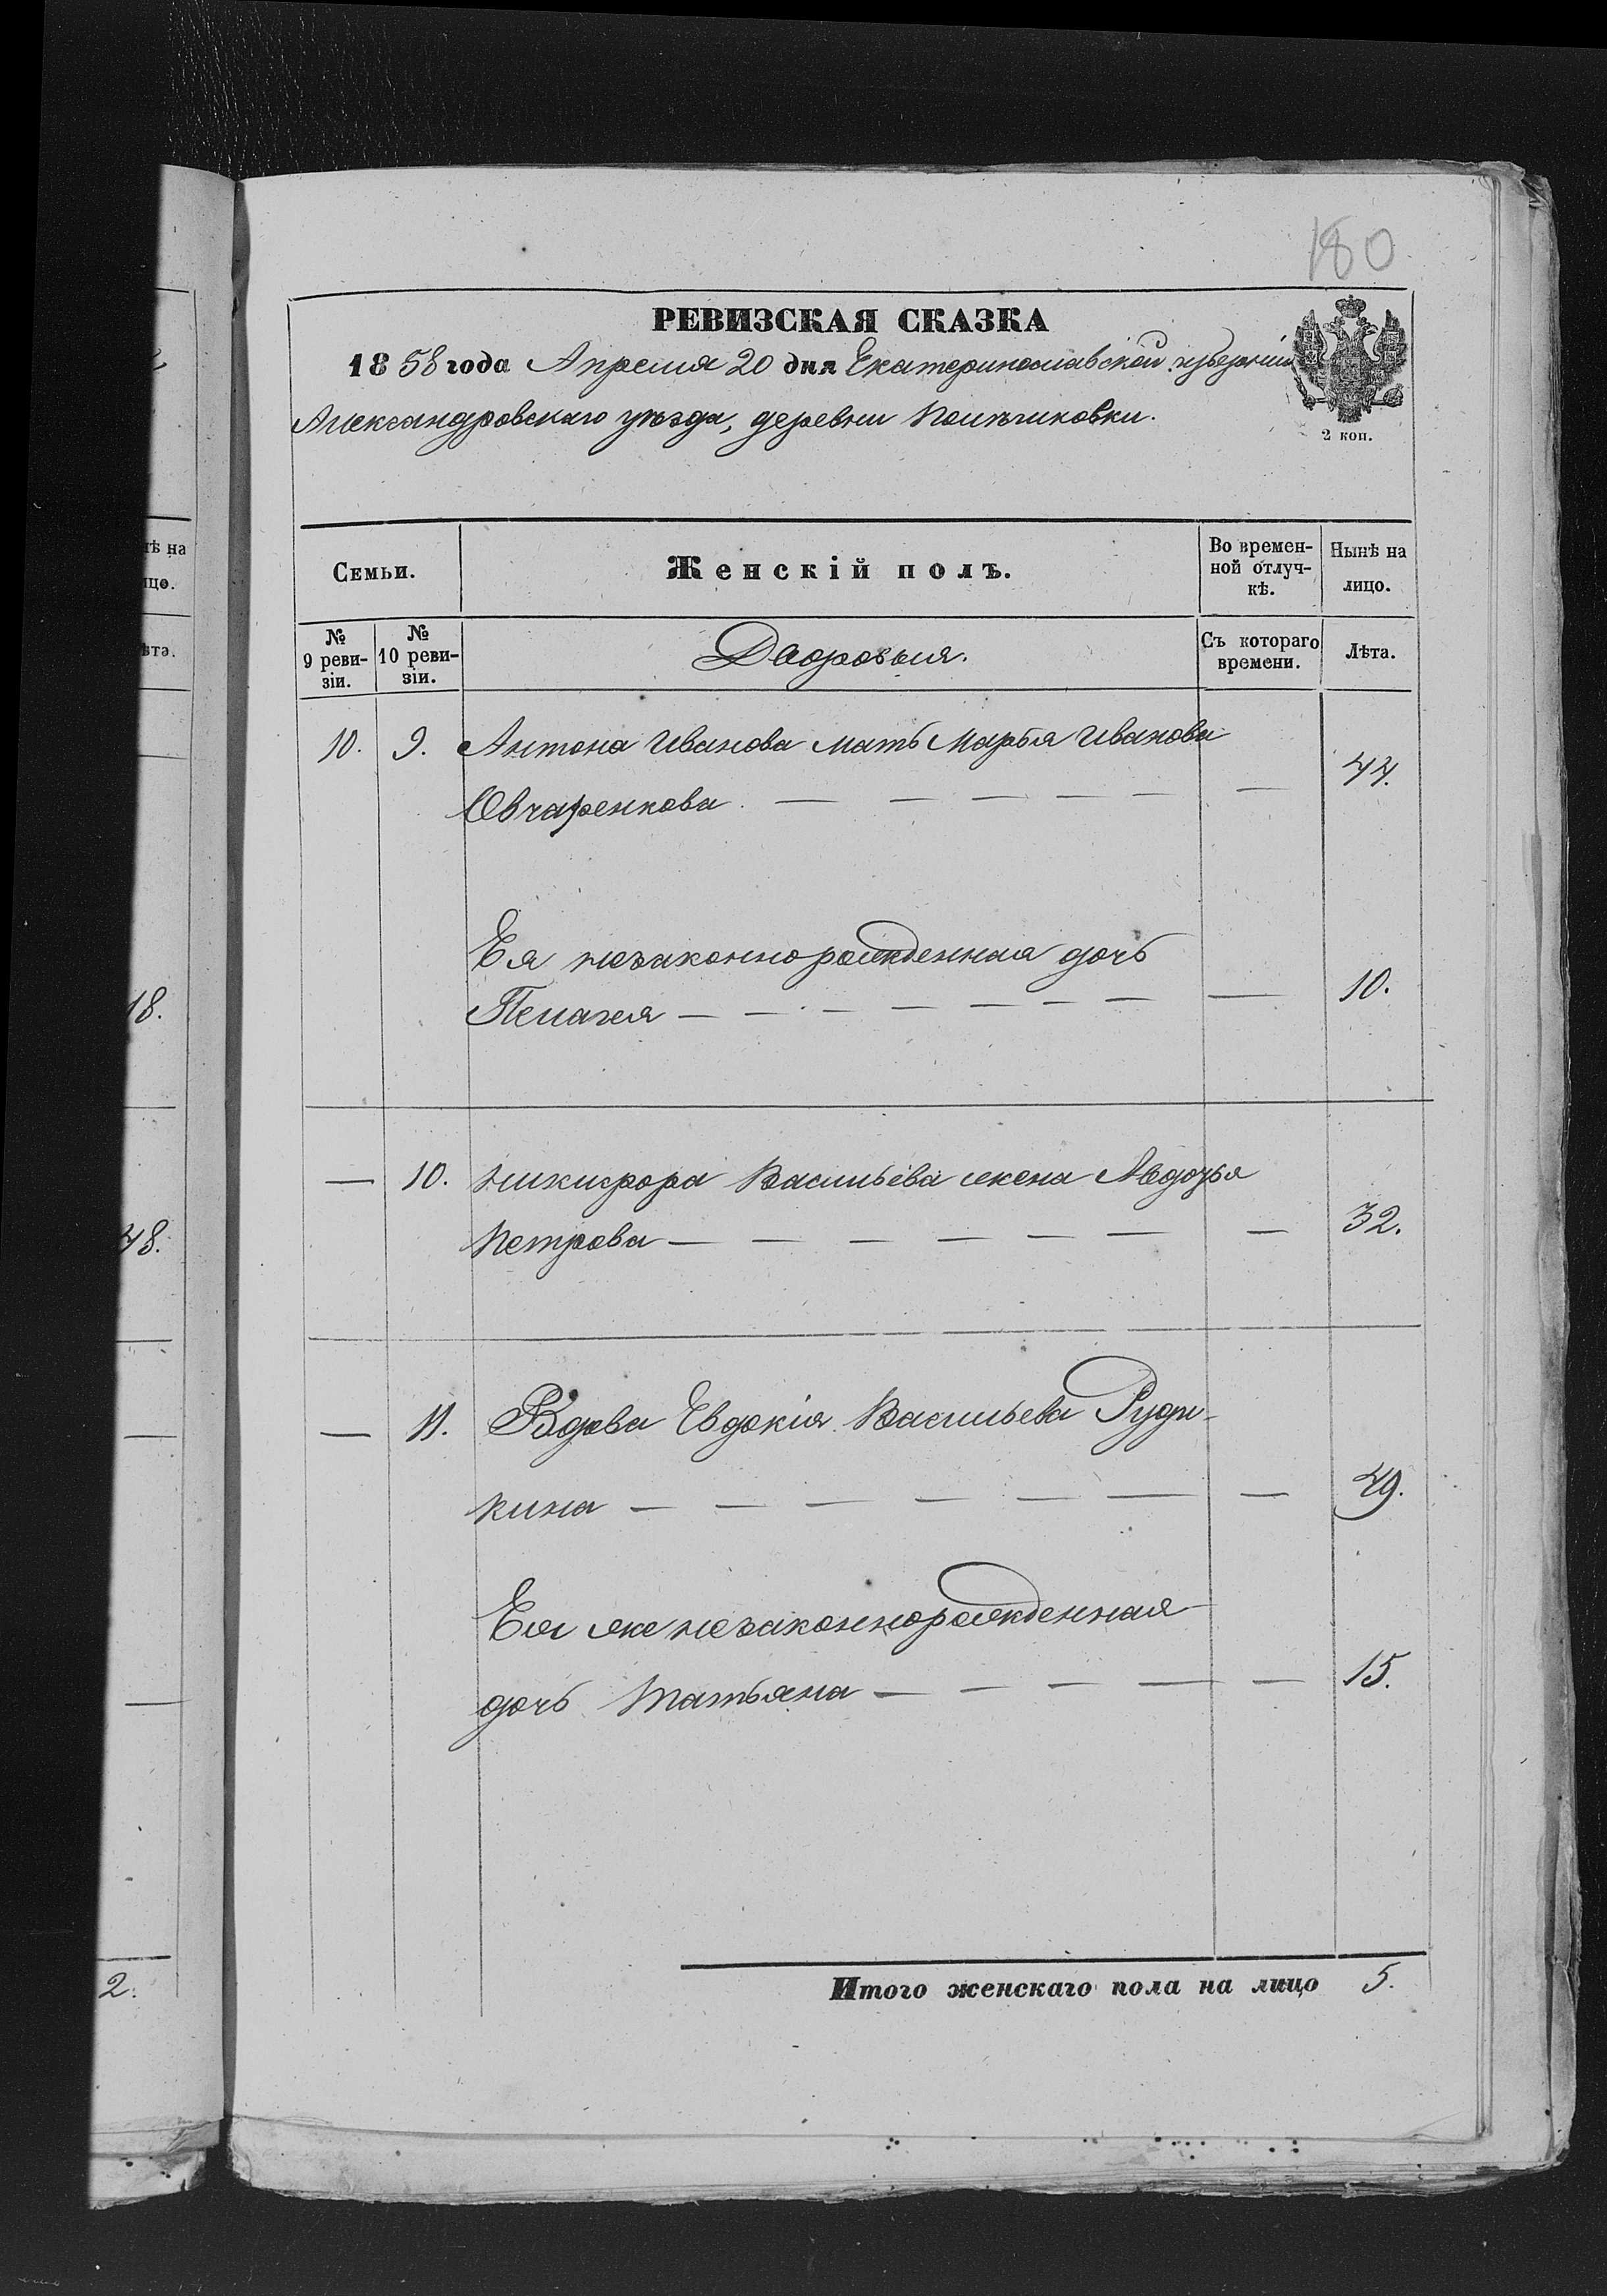 180
РЕВИЗСКАЯ СКАЗКА
1858 года Апреля 20 дня Екатеринославской губерніи
Александровскаго уѣзда, деревни
2 коп.
Семьи.
Женскій полъ.
Во времен-
ной отлуч-
кѣ.
Нынѣ на
лицо.
№
9 реви-
зіи.
№
10 реви-
зіи.
Дворовыя.
Съ котораго
времени.
Лѣта.
10. 9. Антона Иванова мать Марѳа Иванова
Овчаренкова — — — — — — 44.
Ея незаконнорожденная дочь
Пелагея — — — — — — — — 10.
— 10. Никифора Васильева жена Авдотья
Петрова — — — — — — — — 32.
— 11. Вдова Евдокія Васильева Руди-
кина — — — — — — — — 49.
Ея же незаконнорожденная
дочь Татьяна — — — — — 15.
Итого женскаго пола на лицо 5.
нѣ на
ицо.
ѣта.
18.
48.
2.